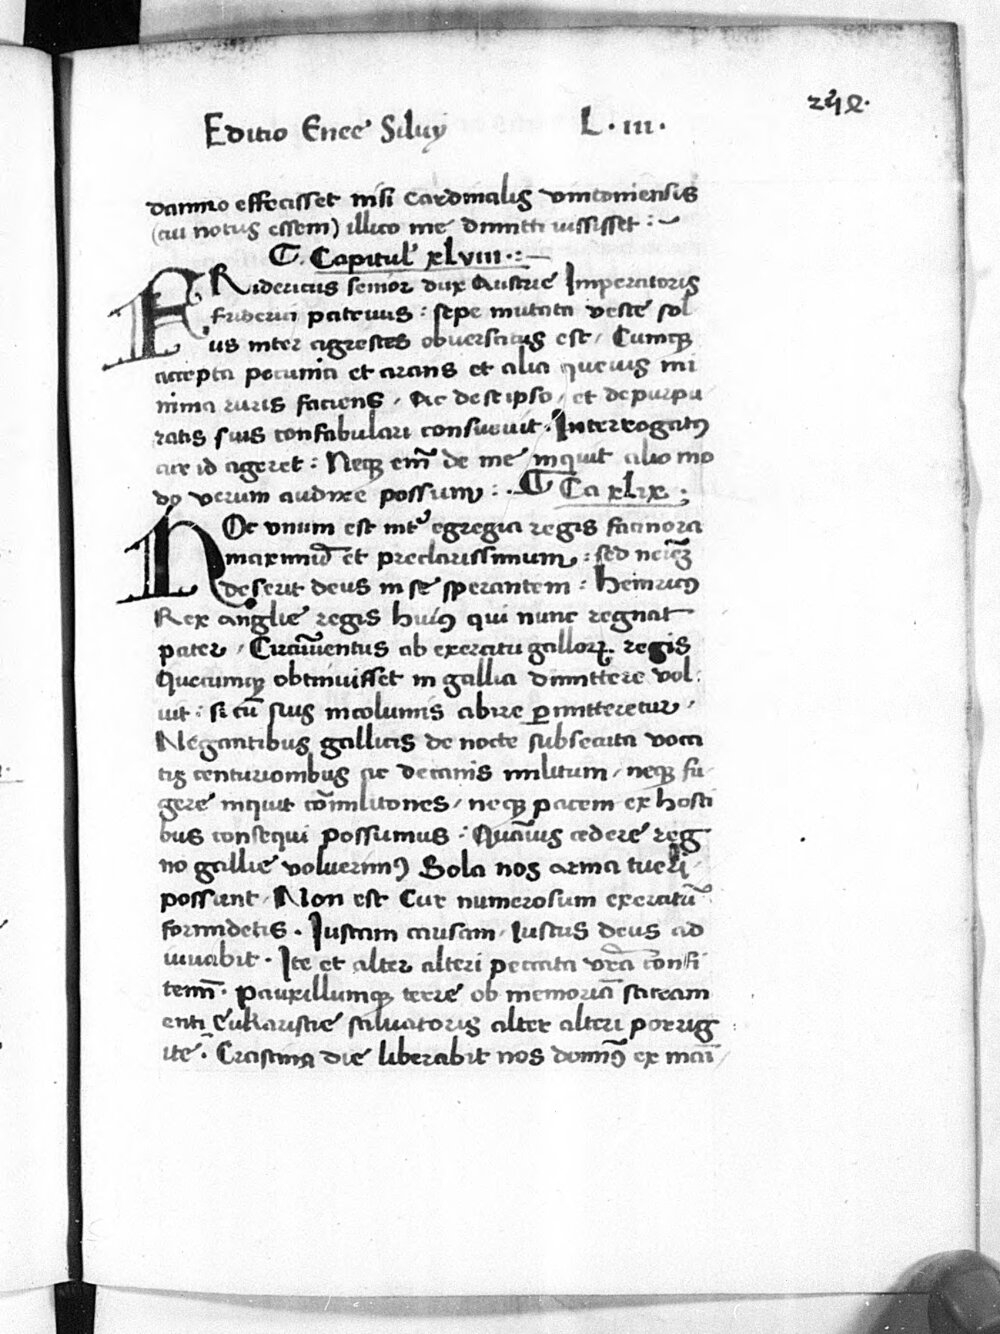 Editio Enee Siluij L . iii .
damno effecisset nisi Cardinalis vintoniensis
(cui notus essem) illico me dimitti iussisset :
Capitul' xlviii .:
FRidericus senior dux Austrie Imperatoris
friderici patruus : sepe mutata veste sol
us inter agrestes obuersatus est / Cumq3
accepta pecunia et arans et alia queuis mi
nima ruris faciens / Ac de se ipso / et de purpu
ratis suis confabulari consueuit . Interrogatus
cur id ageret : Neq3 em̄ de me inquit alio mo
do verum audire possum : . Ca xlix ;
HOc vnum est int' egregia regis facinora
maximū et preclarissimum : sed
deserit deus in se sperantem : heinricus
Rex anglie regis huius qui nunc regnat
pater / Circūuentus ab exercitu gallor. regis
Quecumq3 obtinuisset in gallia dimittere vol:
uit : si cū suis incolumis abire p̲mitteretur /
Negantibus gallicis de nocte subsecuta voca
tis centurionibus ac decanis militum / neq3 fu
gere inquit cōmilitones / neq3 pacem ex hosti
bus consequi possumus : Quāuis cedere reg
no gallie voluerimus Sola nos arma tueri
possunt / Non est Cur numerosum exercitū
formidetis . Iustam causam / Iustus deus ad
iuuabit . Ite et alter alteri peccata vr̄a confi
temī . pauxillumq3 terre ob memoriā sacram
enti Eukaristie saluatoris alter alteri porrig
ite . Crastina die liberabit nos domīus ex mai